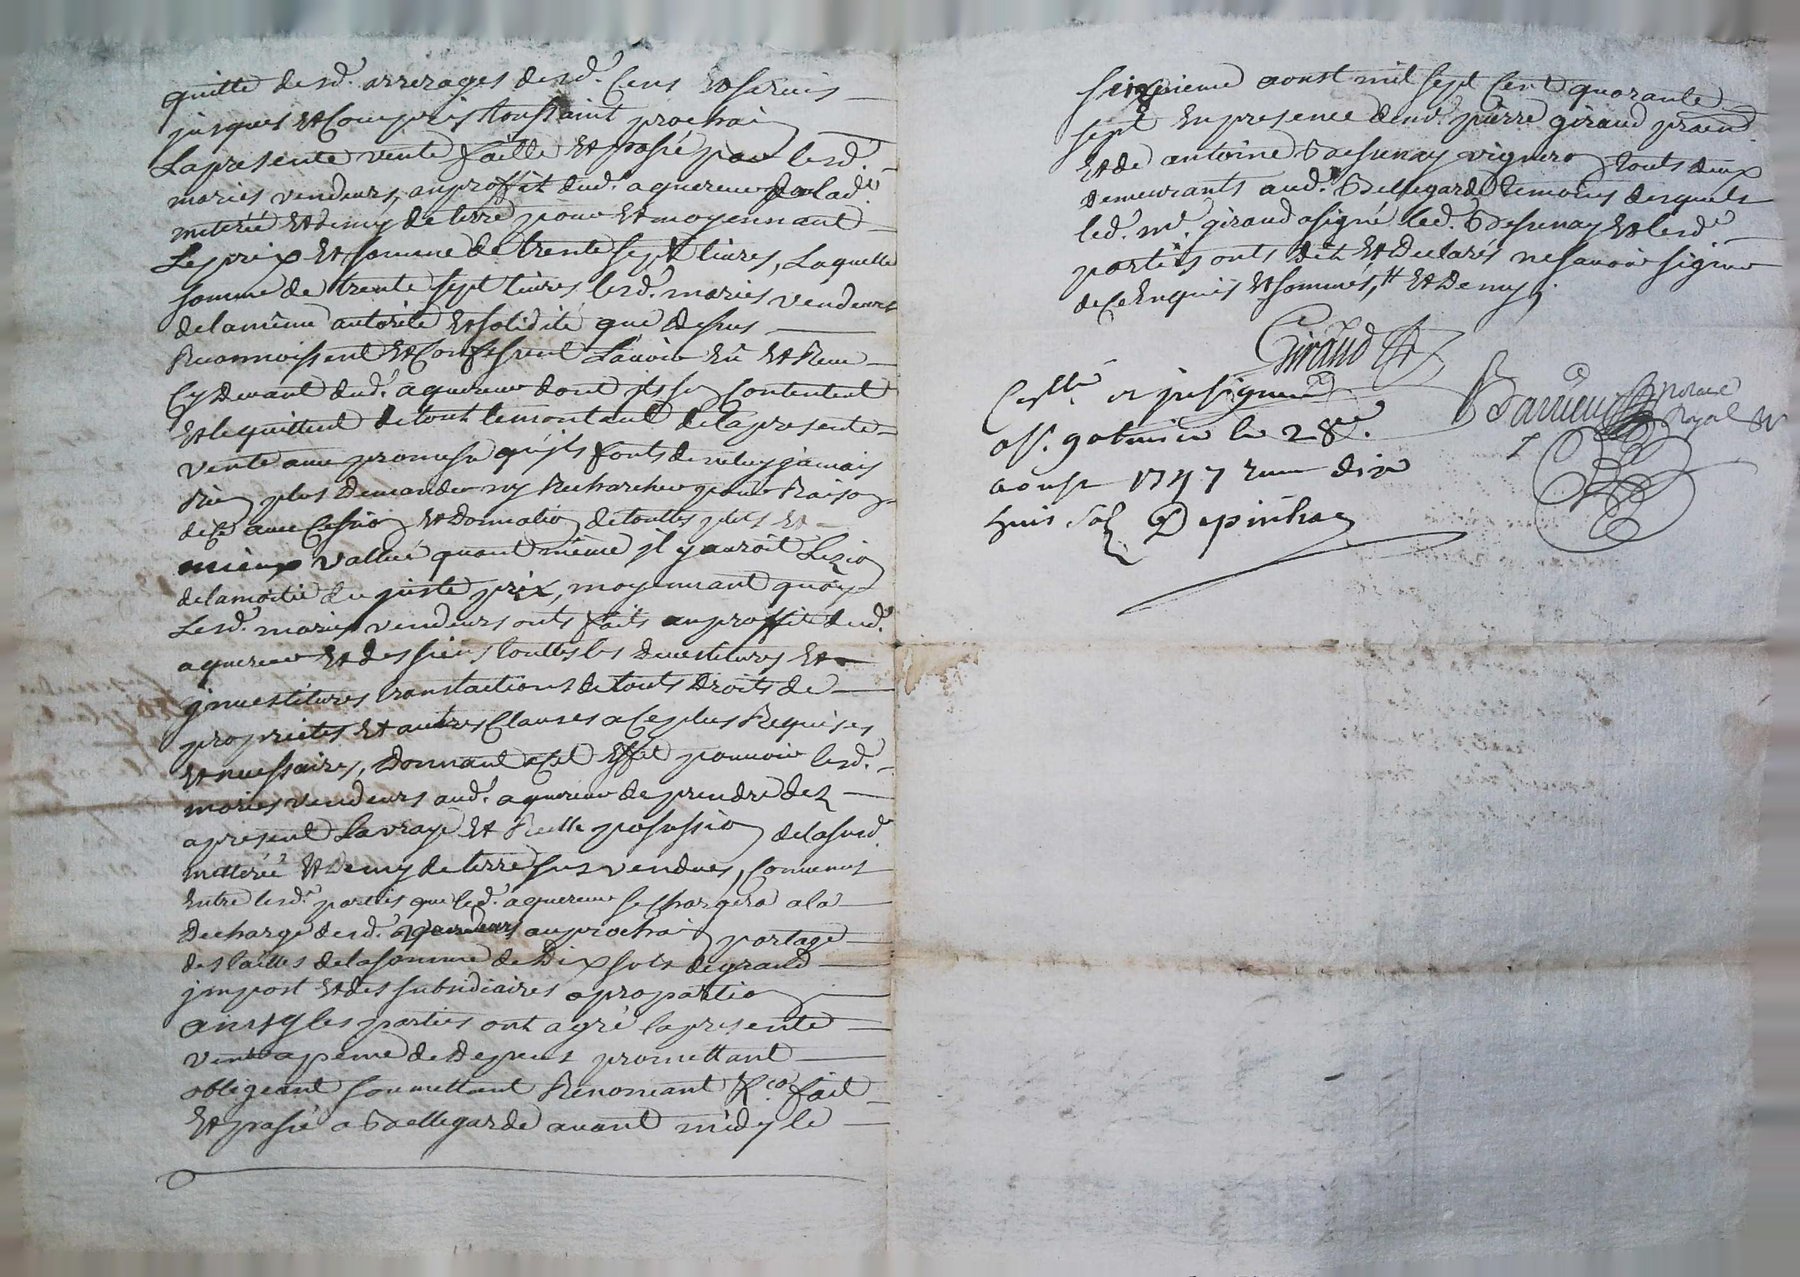 quitte desd. arrerages desd. Cens & servis
jusques & Compris toussaint prochain
La presente vente faitte & passé par lesd.
mariés vendeurs, au proffit dud. aquereur de lad.
meterée & demy de terre pour & moyennant
Le prix & somme de trente sept livres, Laquelle
somme de trente sept livres lesd. mariés vendeurs
de la même autorité & solidité que dessus
Reconnoissent & Confessent L'avoir Eü & Receu
Cy devant dud. aquereur dont ils se Contentent
& le quittent de tout le montant de la presente
vente avec promesse qu'ils fonts de ne luy jamais
Rien plus demander ny Rechercher pour Raison
de Ce avec Cession & donnation de touttes plus &
mieux vallue quant même jl y auroit Lezion
de la moitié du juste prix, moyennant quoy
Lesd. mariés vendeurs onts faits au proffit dud.
aquereur & des siens touttes les devestitures &
jnvestitures translactions de touts droits de
proprietés & autres Clauses a Ce plus Requises
& necessaires, donnant a Cet effet pouvoir lesd.
mariés vendeurs aud. aquereur de prendre dez
a present La vraye & Reelle possession de la susd.
metterée & demy de terre sus vendues, Convenus
Entre lesd. parties que led. aquereur se Chargera a la
decharge desd. vendeurs au prochain partage
des tailles de la somme de dix sols de grand
jmpost & des subsidiaires a proportion
ainsy les parties ont agré la presente
vente a peine de depens promettant
obligeant soumettant Renonçant &c.a fait
& passé a Bellegarde avant midy le
seizieme aoust mil sept Cent quarante
sept En presence de md. pierre giraud praticien
& de antoine vigneron touts deux
demeurants aud. Bellegarde temoins desquels
led. m. giraud a signé led. & lesd.
parties onts dit & declarés ne savoir signer
de Ce Enquis & sommés, &
Giraud
Barrieu notaire
Royal
Contllé et jnsigné a
st. galmier le 28e.
aoust 1747 receu dix
huit sols Depinhac